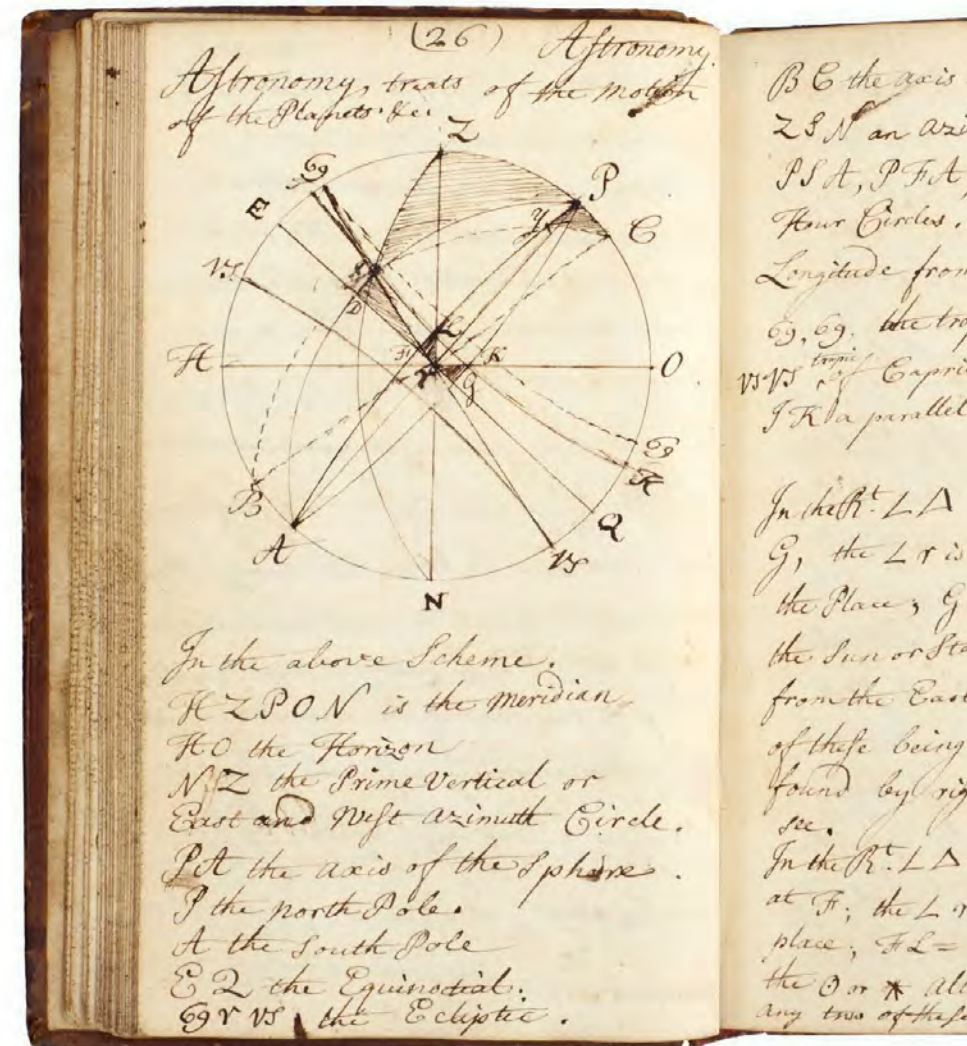 (26) Astronomy.
Astronomy, treats of the motion
of the Planets &c.
Z
69
P
E
Y
C
S
VS
D
L
H
F
K
O
G
69
B
K
Q
A
VS
N
In the above Scheme.
HZPON is the meridian
HO the Horizon
NZ the Prime Vertical or
East and West azimuth Circle.
PA the axis of the Sphere.
P the north Pole.
A the South Pole
EQ the Equinoctial.
♋ ♈ ♑ the Ecliptic.
BC the axis
ZSN an
PSA, PFA,
Hour Circles.
Longitude from
♋, ♋. the
♑♑ tropic of
IK a parallel
In the Rt. ∠ Δ
G, the ∠ ♈ is
the Place; G
the Sun or
from the East
of these being
found by
see.
In the Rt. ∠ Δ
at F; the ∠ ♈
place; FL =
the ☉ or * Alt
any two of these